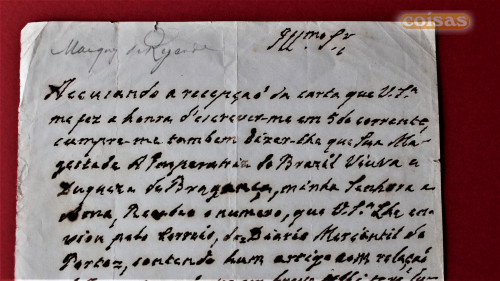 coisas
Illmo Sr.
Marquez de Rezende
Accusando a recepçaõ da carta que V. Sª
me fez a honra d'escrever-me em 5 do corrente,
cumpre-me tambem dizer-lhe que Sua Ma-
gestade A Imperatriz do Brazil Viuva e
Duqueza de Bragança, minha Senhora e
Ama, Recebeo o numero, que V. Sª Lhe en-
viou pelo Correio, do Diario Mercantil do
Porto, contendo hum artigo com relaçaõ